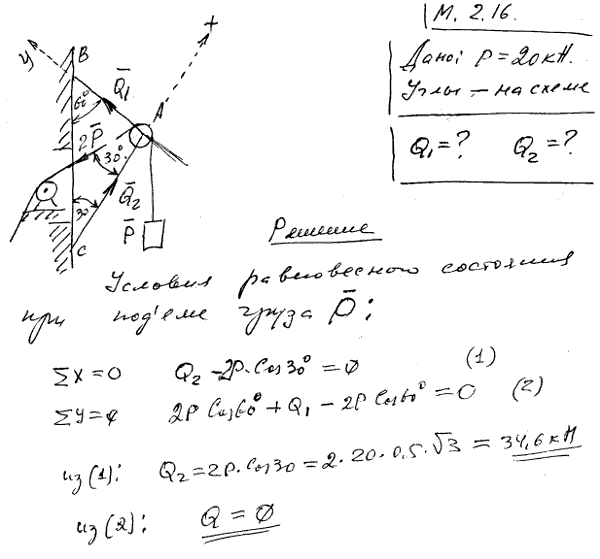 М. 2.16.
Дано: P = 20 кН.
Углы – на схеме
Q₁ = ? Q₂ = ?
y
x
B
Q̄₁
A
60°
2P̄
30°
Q̄₂
30
P̄
C
Решение
Условия равновесного состояния
при под'еме груза P̄:
ΣX = 0 Q₂ – 2P·Cos30° = 0 (1)
ΣY = 0 2P Cos60° + Q₁ – 2P Cos60° = 0 (2)
из (1): Q₂ = 2P·Cos30 = 2·20·0,5·√3 = 34,6 кН
из (2): Q = 0